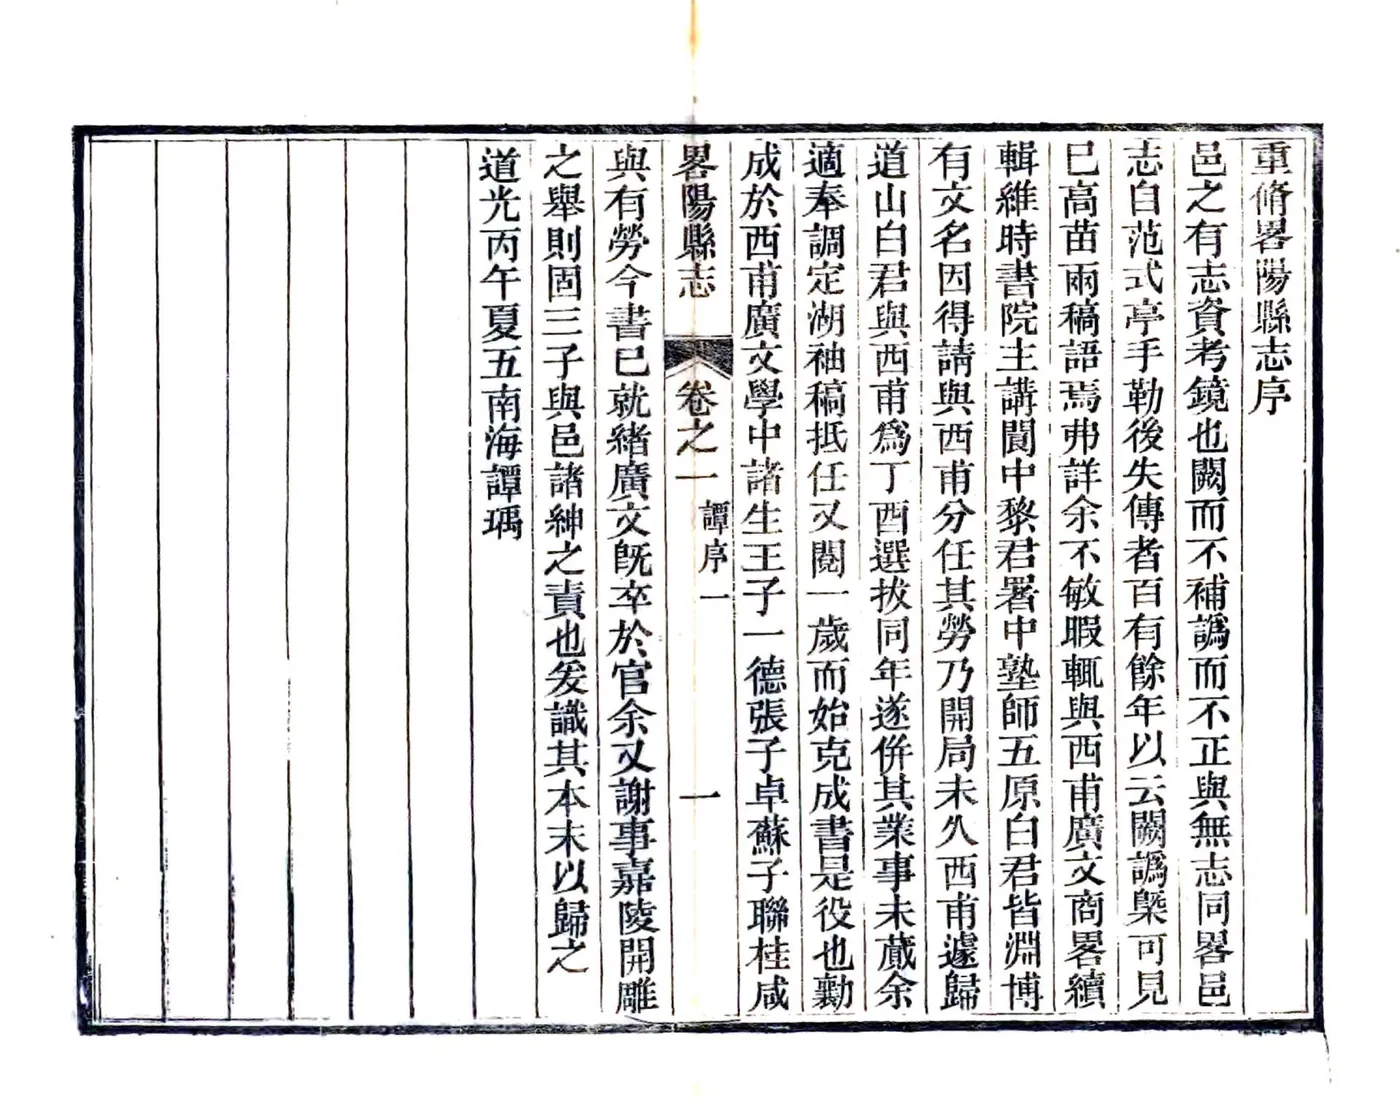 重脩畧陽縣志序
邑之有志資考鏡也闕而不補譌而不正與無志同畧邑
志自范式亭手勒後失傳者百有餘年以云闕譌槩可見
已高苗雨稿語焉弗詳余不敏暇輒與西甫廣文商畧續
輯維時書院主講閬中黎君署中塾師五原白君皆淵博
有文名因得請與西甫分任其勞乃開局未久西甫遽歸
道山白君與西甫爲丁酉選拔同年遂併其業事未蕆余
適奉調定湖袖稿抵任又閱一歲而始克成書是役也勷
成於西甫廣文學中諸生王子一德張子卓蘇子聯桂咸
畧陽縣志 卷之一 譚序一 一
與有勞今書已就緒廣文旣卒於官余又謝事嘉陵開雕
之舉則固三子與邑諸紳之責也爰識其本末以歸之
道光丙午夏五南海譚瑀